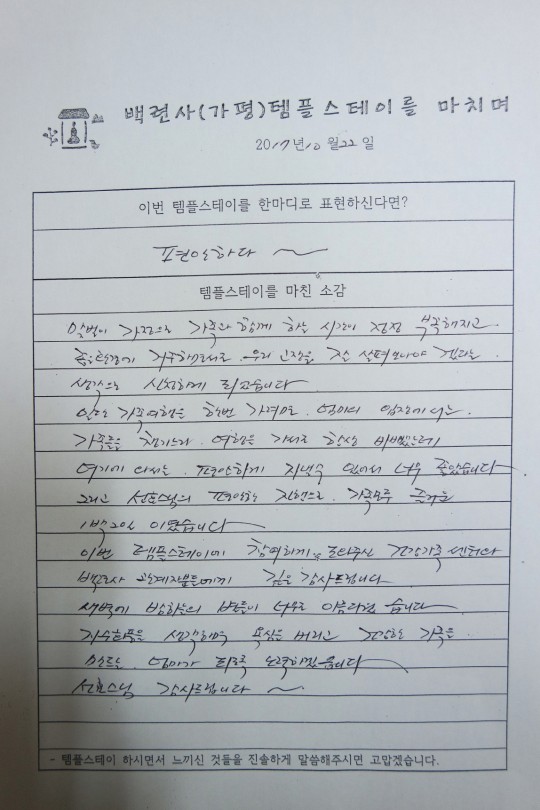 백련사(가평)템플스테이를 마치며
2017년 10월 22일
이번 템플스테이를 한마디로 표현하신다면?
편안하다 ~
템플스테이를 마친 소감
맞벌이 가정으로 가족과 함께 하는 시간이 점점 부족해지고
가족 우리 가정을 살펴보아야 겠다는
생각으로 신청하게 되었습니다
가족여행을 한번 가려면 엄마의 입장에서는
가족들을 챙기느라 여행을 가서도 항상 바빴는데
여기에 와서는 편안하게 지낼수 있어서 너무 좋았습니다
그리고 선효스님의 편안한 진행으로 가족모두 즐거운
1박2일 이였습니다
이번 템플스테이에 참여하게 도와주신 건강가족센터와
백련사 관계자분들에게 깊은 감사드립니다
새벽에 밤하늘의 별들이 너무도 아름다웠습니다
생각하며 욕심을 버리고 건강한 가족을
만드는 엄마가 되도록 노력하겠습니다
선효스님 감사드립니다 ~
- 템플스테이 하시면서 느끼신 것들을 진솔하게 말씀해주시면 고맙겠습니다.